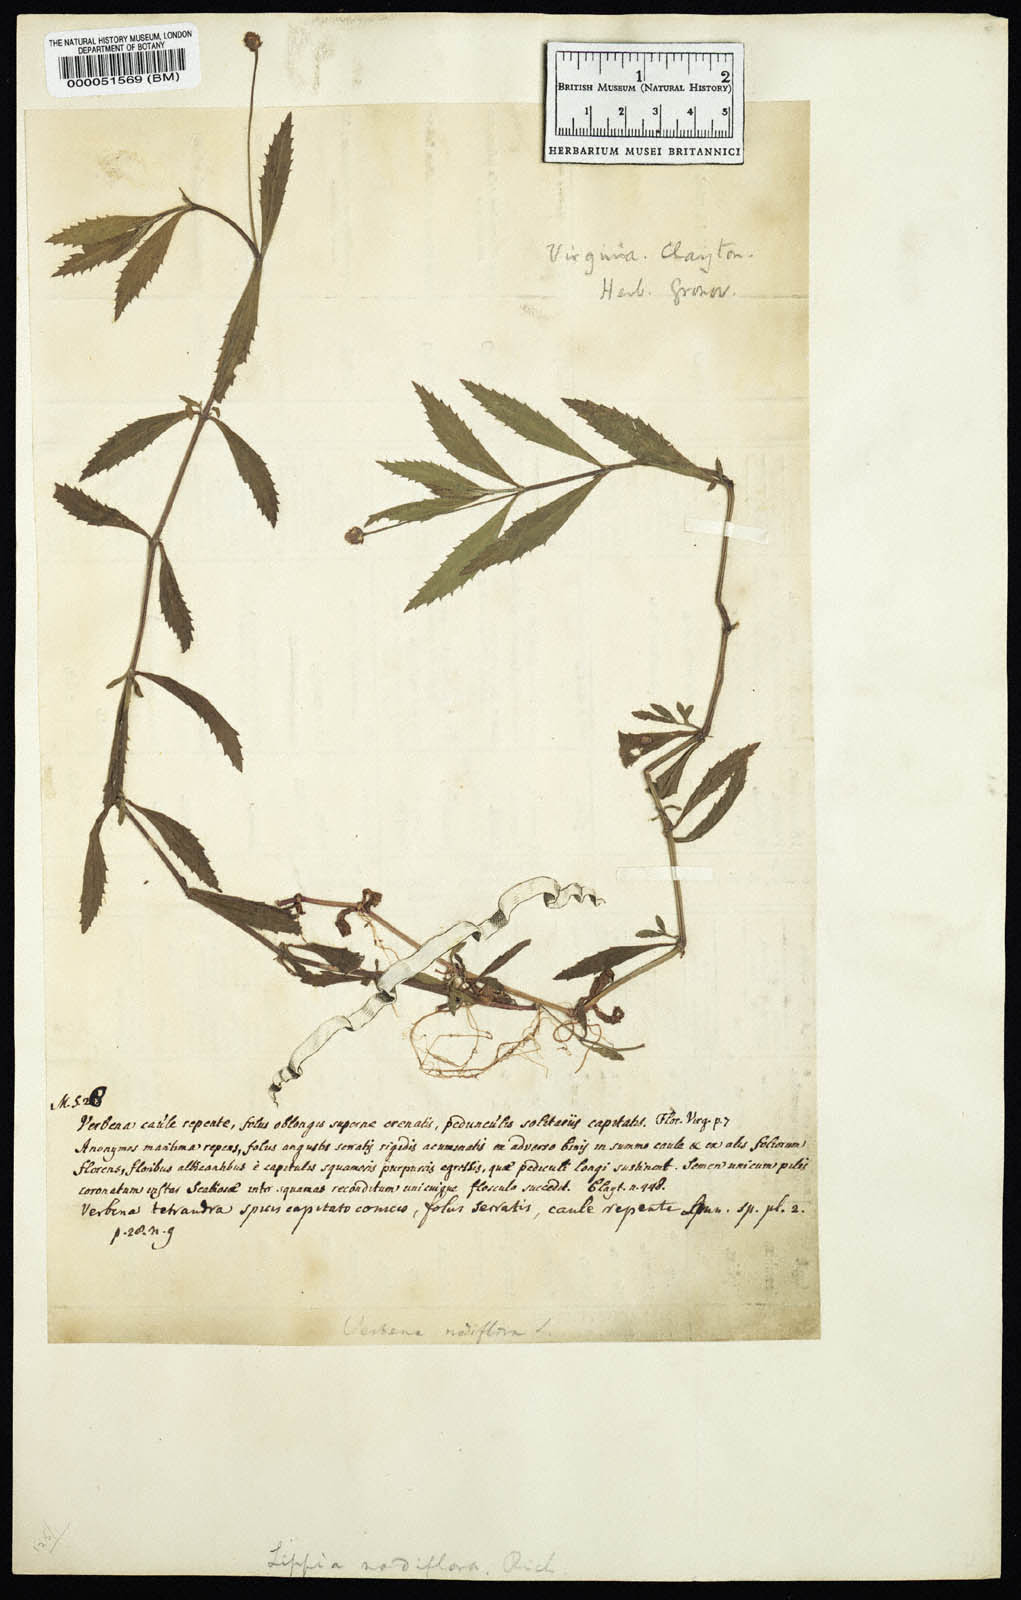 THE NATURAL HISTORY MUSEUM, LONDON
DEPARTMENT OF BOTANY
000051569 (BM)
1 2
BRITISH MUSEUM (NATURAL HISTORY)
1 2 3 4 5
HERBARIUM MUSEI BRITANNICI
Virginia. Clayton.
Herb. Gronov.
Verbena caule repente, foliis oblongis superne crenatis, pedunculis solitariis capitatis. Flor. Virg. p. 7
Anonymos maritima repens, foliis angustis serratis rigidis acuminatis ex adverso binis in summo caule & ex alis foliorum
florens, floribus albicantibus è capitulis squamosis purpureis egressis, quæ pediculi longi sustinent. Semen unicum pilis
coronatum instar Scabiosæ inter squamas reconditum unicuique flosculo succedit. Clayt. n. 448.
Verbena tetrandra spicis capitato conicis, foliis serratis, caule repente Linn. sp. pl. 2.
p. 28. n. 9
Verbena nodiflora L.
Lippia nodiflora. Rich.